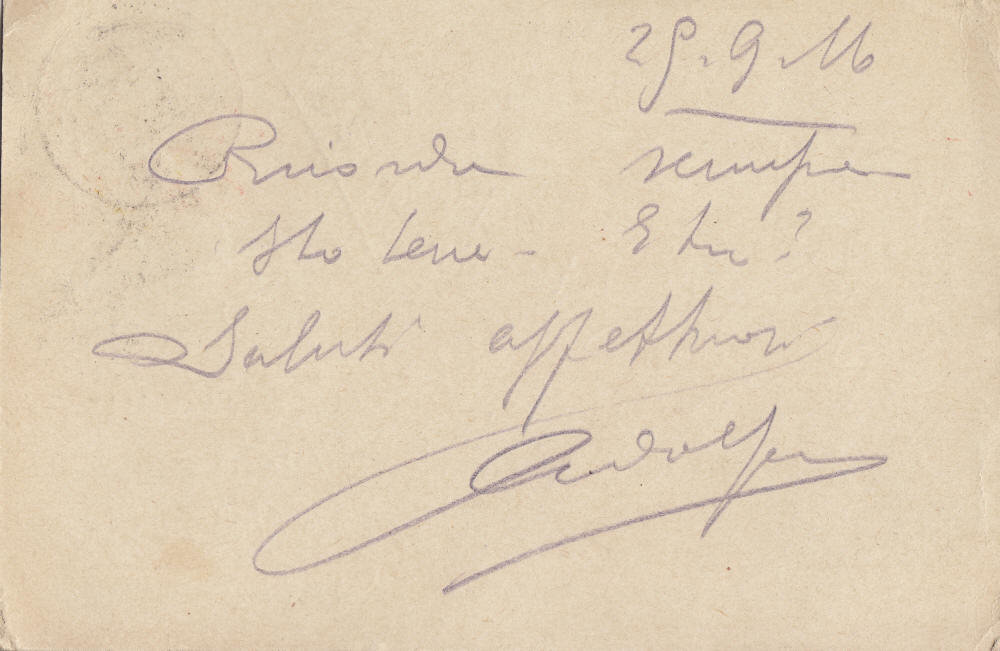 28.9.16
Ricordo sempre
Sto bene - E tu?
Saluti affettuosi
Adolfo